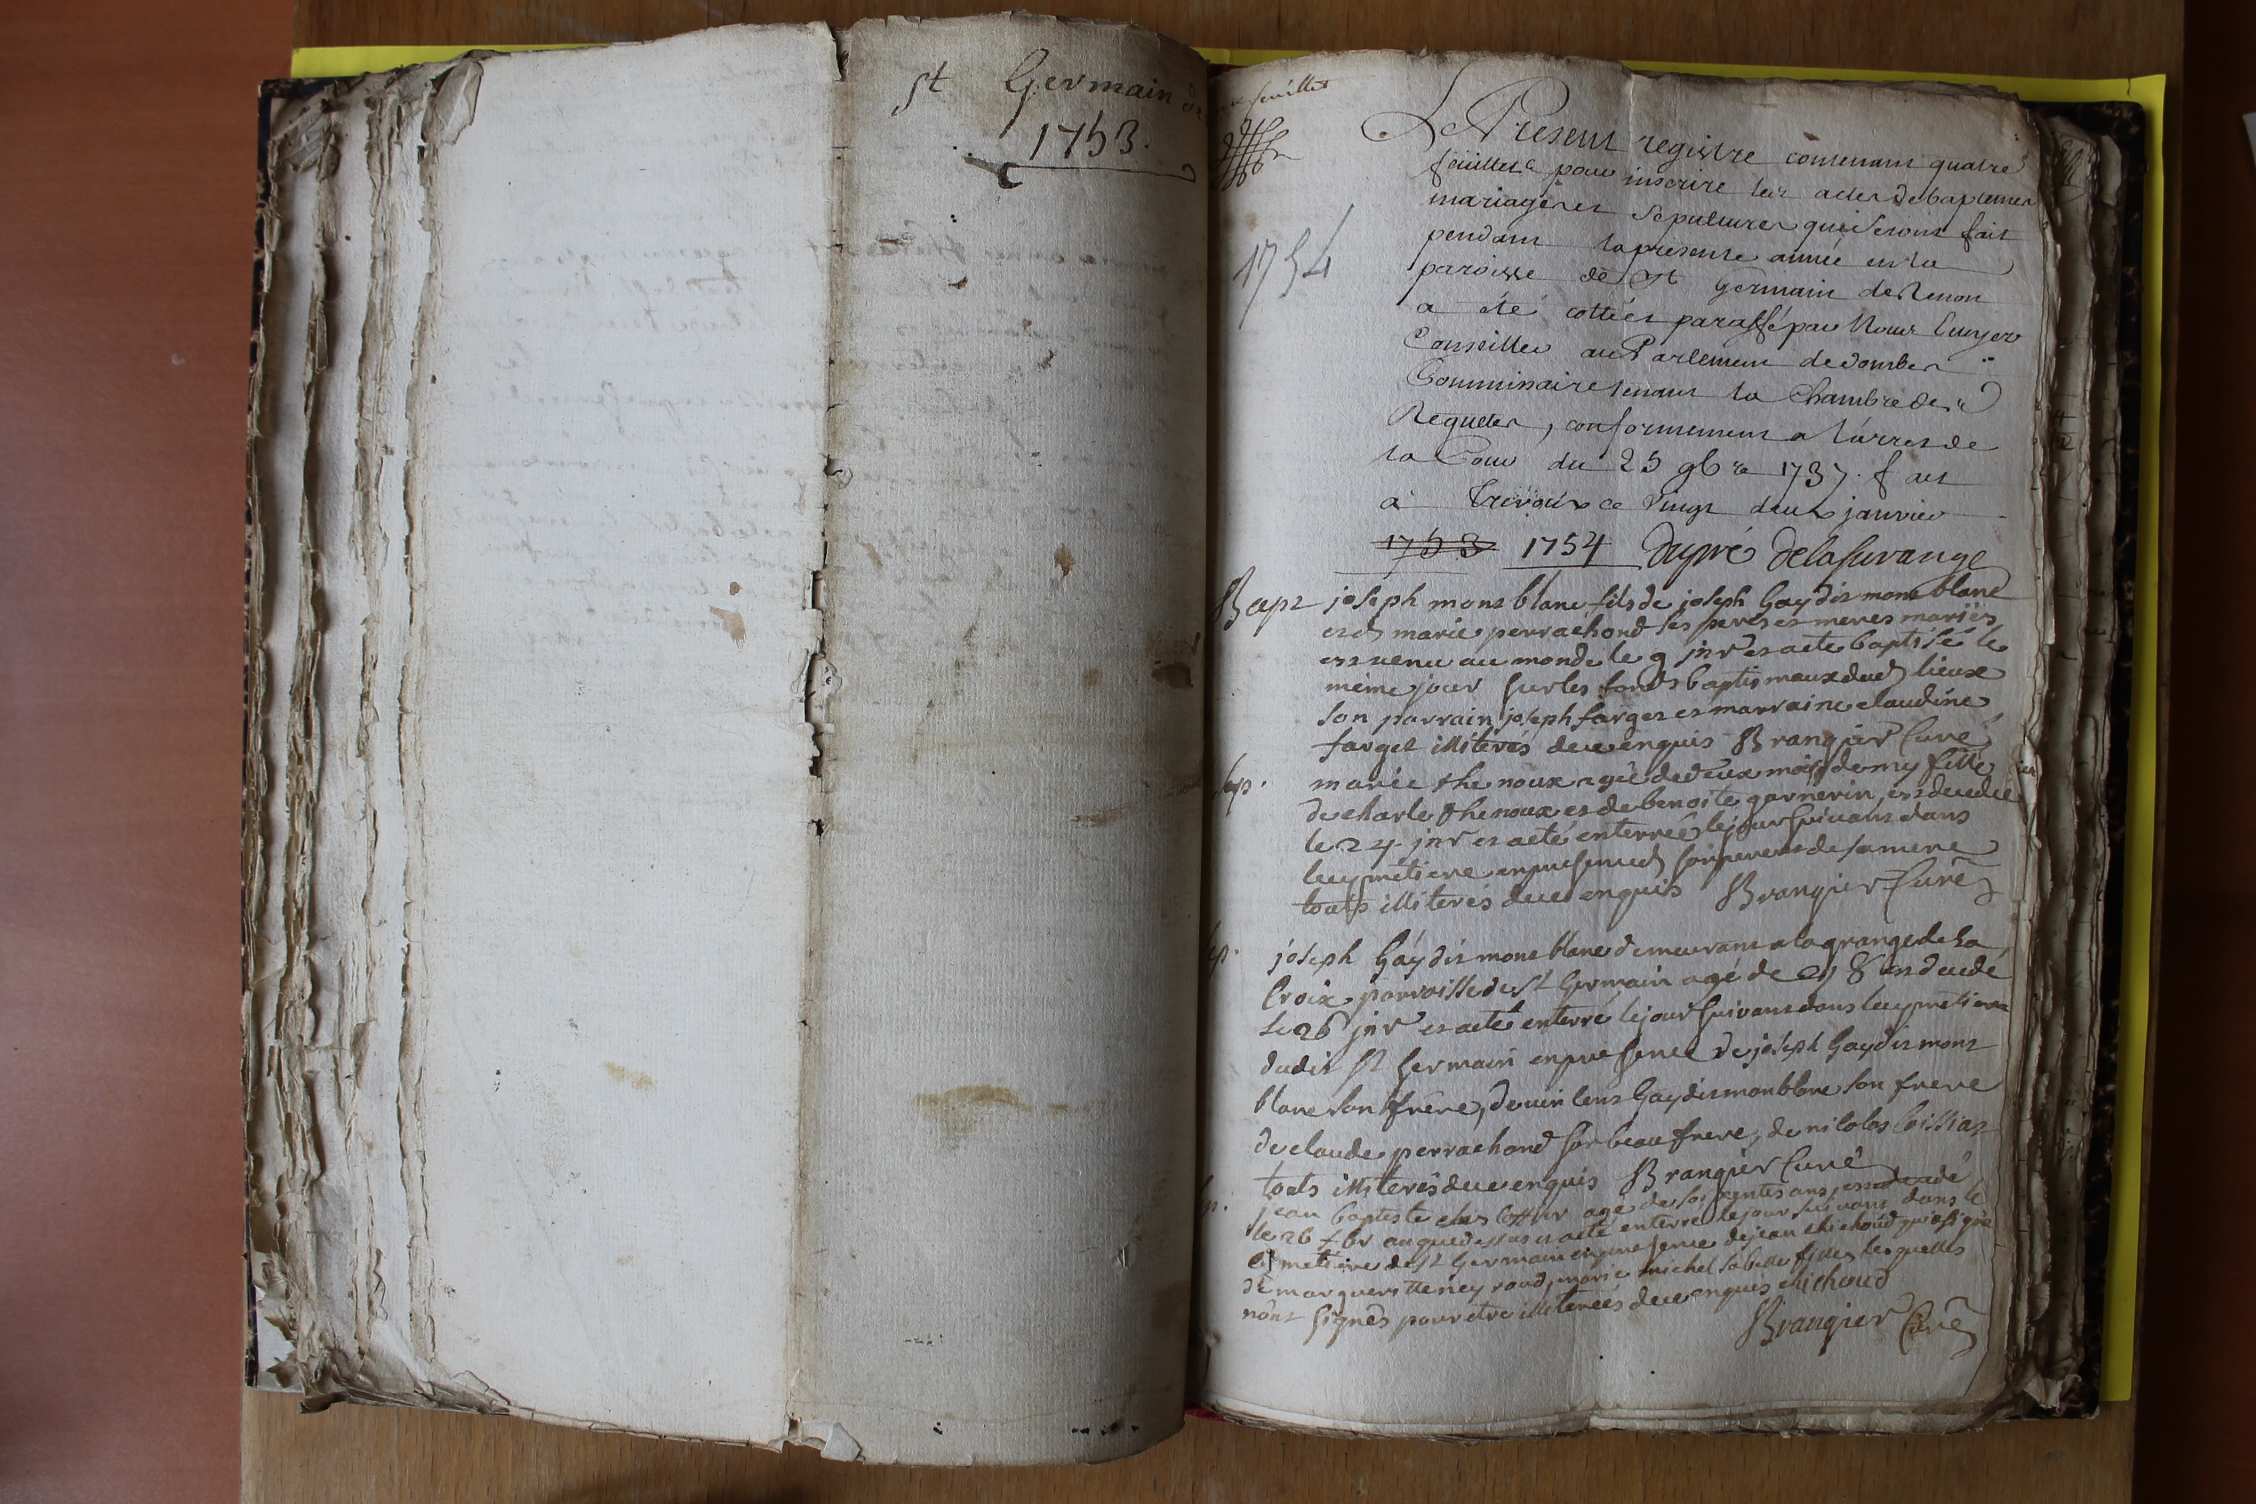 st Germain de
1753.
feuillet
1754
Le Present registre contenant quatre
feuillets pour inscrire les actes de baptemes
mariages et sepultures qui seront fait
pendant la presente année en la
paroisse de St Germain de Renon
a été cottéet paraffé par Nous Ecuyer
Conseiller au Parlement de dombes
Commissaire tenant la Chambre des
Requetes, conformement a l'arrest de
la Cour du 25 9bre 1737. fait
à Trevoux ce vingt deux janvier
1753 1754 dupré
Bapt joseph mont blanc fils de joseph Gay dit mont blanc
et d marie perrachond ses peres et meres mariés
est venu au monde le 9 jnvr et a ete baptisé le
même jour sur les fonds baptismaux dud lieux
son parrain joseph farget et marraine claudine
farget illiterés de ce enquis Brangier Curé
sep. marie thenoux agée de deux mois et demy fille
de charle thenoux et de benoite garnerin est decedee
le 24 jnvr et a eté enterreé le jour suivant dans
le cymetiere en presence d son pere et de sa mere
touts illiterés de ce enquis Brangier Curé
sep. joseph Gay dit mont blanc demeurant a la grange de la
Croix parroisse de St Germain agé de 28 est decedé
le 26 jnvr et a eté enterré le jour suivant dans le cymetiere
dudit St Germain en presence de joseph Gay dit mont
blanc son frère, de vincent Gay dit mon blanc son frere
de claude perrachond son beau frere, de nicolas
touts illiterés de ce enquis Brangier Curé
sep. jean baptiste agé de soixentes ans est decedé
le 26 que dessus et a eté enterré le jour suivant dans le
cymetiere de St Germain en presence de jean chichoud qui a signé
de marguerite neyroud, marie michel sa belle fille lesquelles
n'ont signés pour etre illiterées de ce enquis chichoud
Brangier Curé